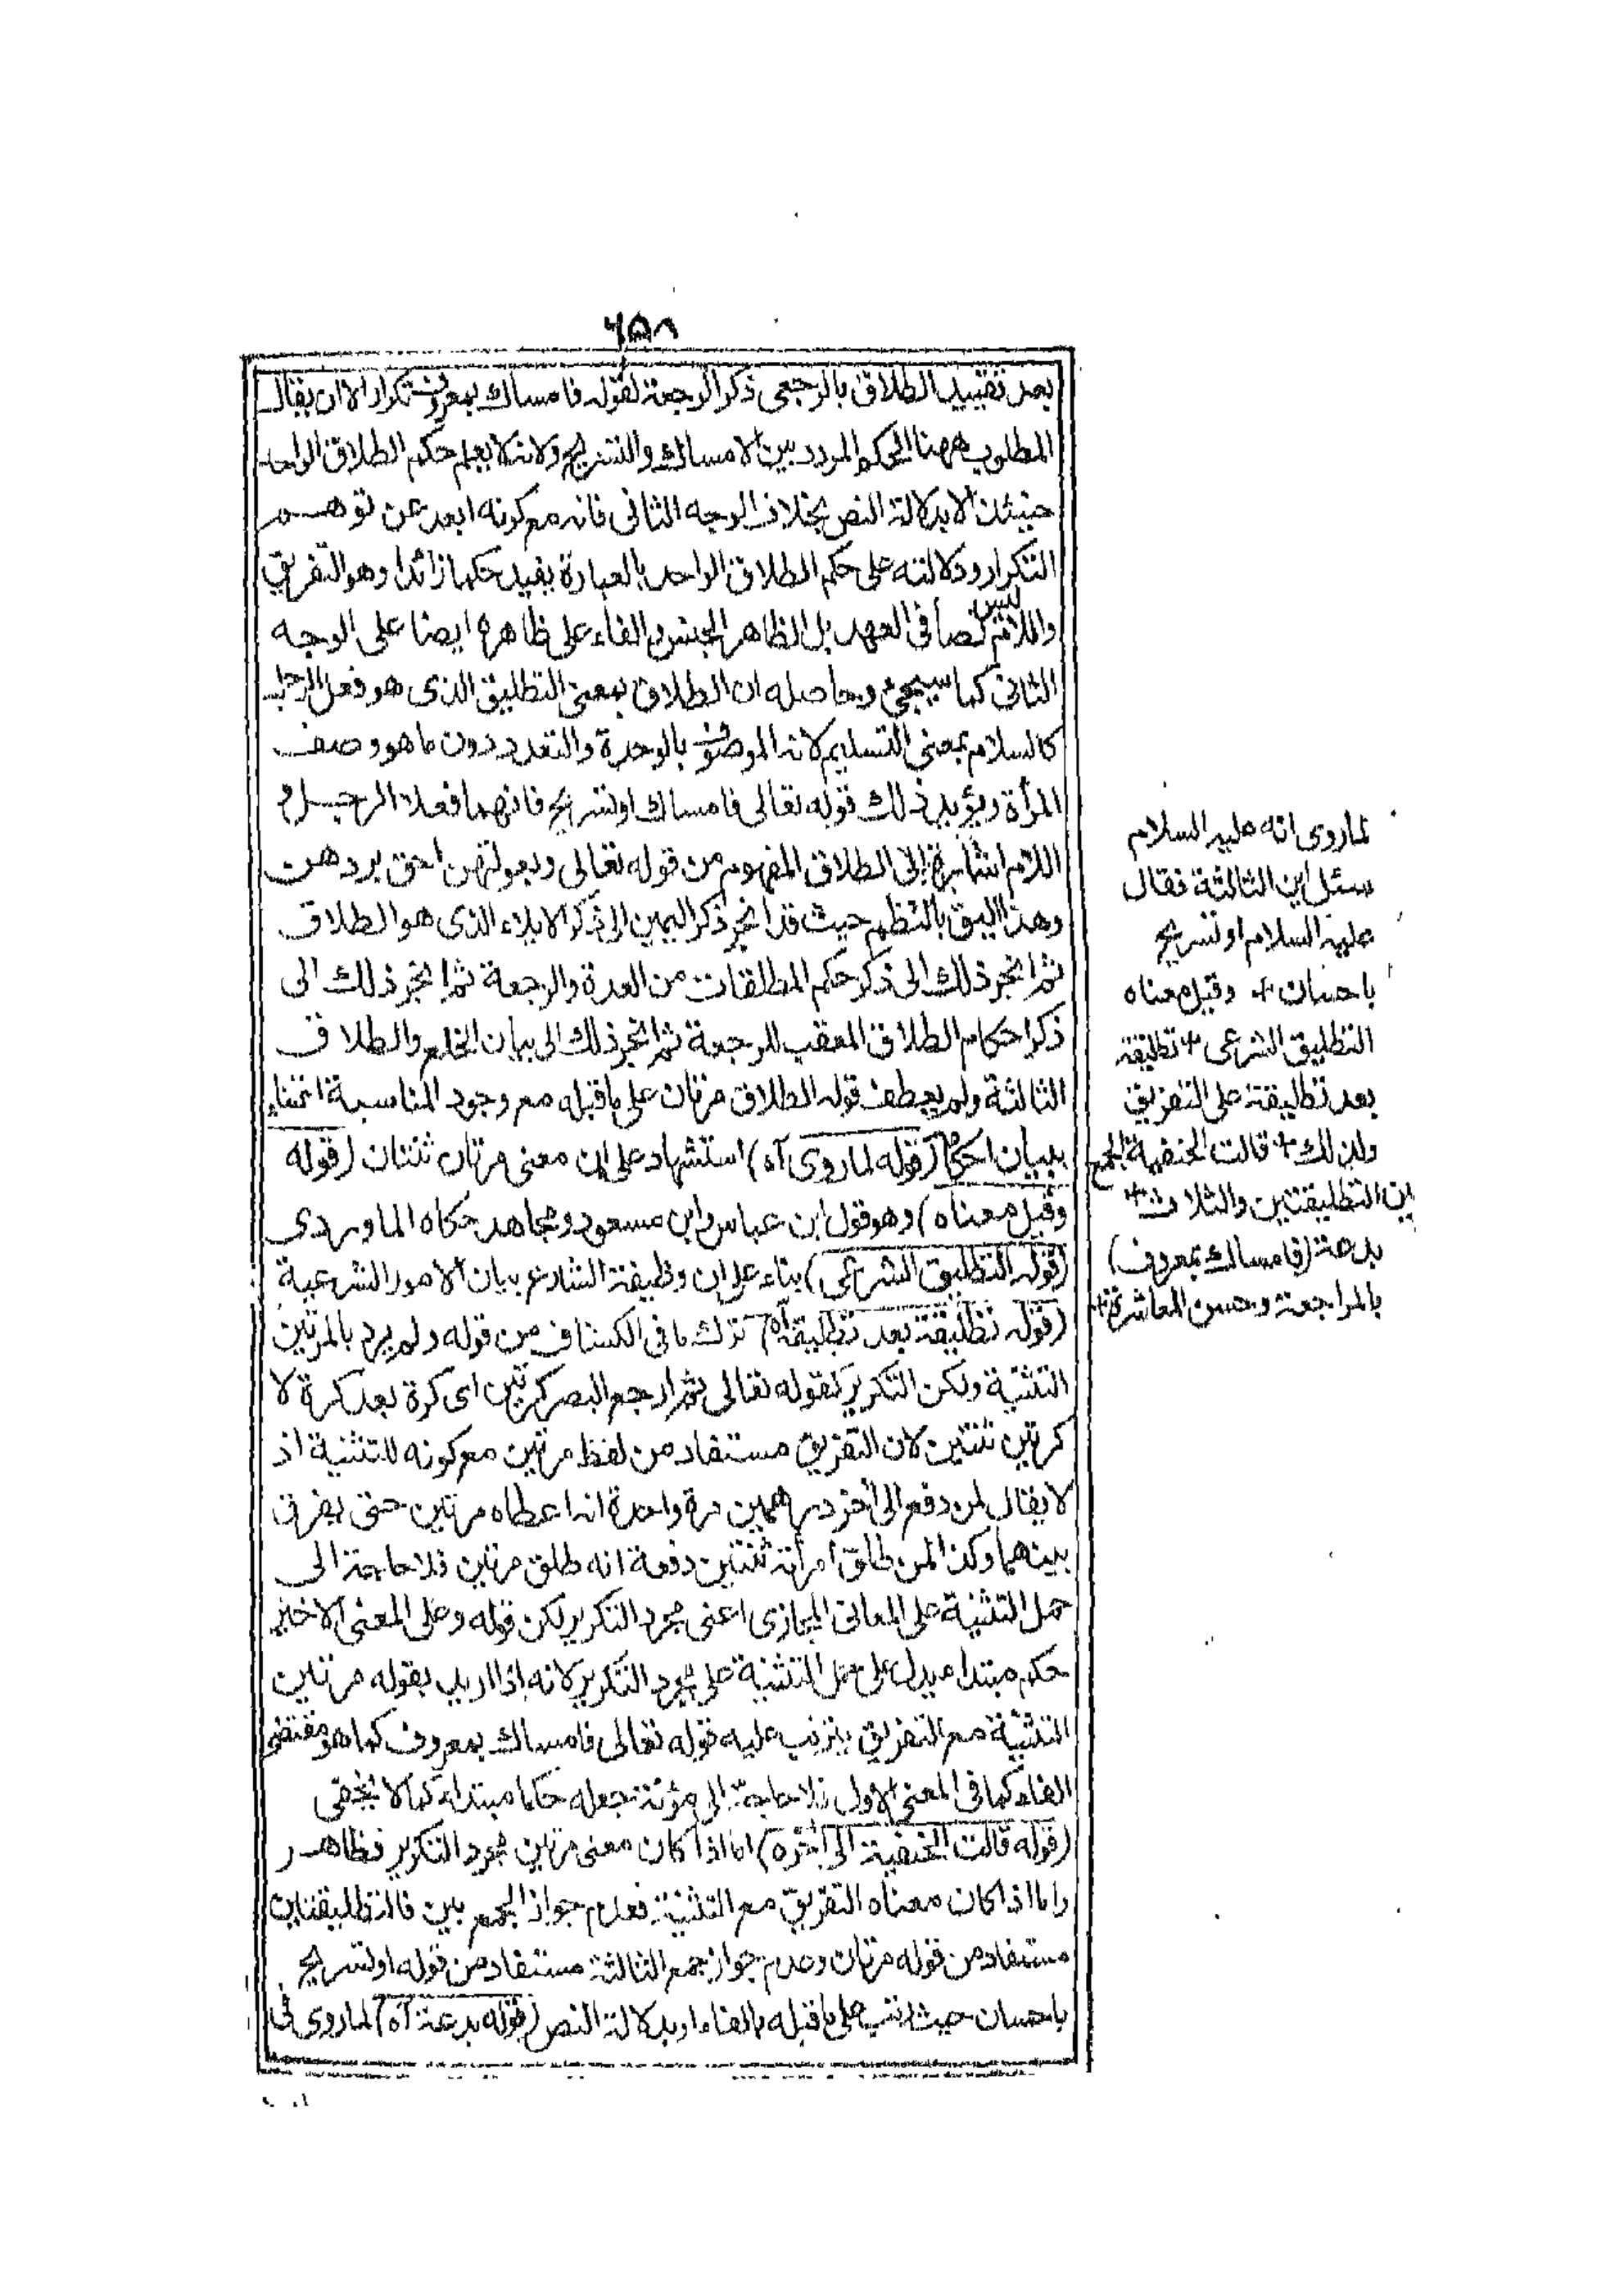 ٦٥٨
بعد تقييد الطلاق بالرجعى ذكر الرجعة لقوله فامساك بمعروف تكرار الا ان يقال
المطلوب ههنا الحكم المردد بين الامساك والتسريح ولانه لا يعلم حكم الطلاق الواحد
حينئذ الا بدلالة النص بخلاف الوجه الثانى فانه مع كونه ابعد عن توهم
التكرار ودلالته على حكم الطلاق الواحد بالعبارة يفيد حكما زائدا وهو التفريق
واللام ليس نصا فى العهد بل الظاهر الجنس والفاء على ظاهره ايضا على الوجه
الثانى كما سيجئ وحاصله ان الطلاق بمعنى التطليق الذى هو فعل الرجل
كالسلام بمعنى التسليم لانه الموصوف بالوحدة والتعدد دون ما هو وصف
المرأة ويؤيد ذلك قوله تعالى فامساك او تسريح فانهما فعلا الرجل و
اللام اشارة الى الطلاق المفهوم من قوله تعالى وبعولتهن احق بردهن
وهذا اليق بالنظم حيث قد انجر ذكر اليمين الى ذكر الايلاء الذى هو الطلاق
ثم انجر ذلك الى ذكر حكم المطلقات من العدة والرجعة ثم انجر ذلك الى
ذكر احكام الطلاق المعقب للرجعة ثم انجر ذلك الى بيان الخلع والطلاق
الثالثة ولم يعطف قوله الطلاق مرتان على ما قبله مع وجود المناسبة اعتناء
ببيان احكام (قوله لما روى آه) استشهاد على ان معنى مرتان ثنتان (قوله
وقيل معناه) وهو قول ابن عباس وابن مسعود ومجاهد حكاه الماوردى
(قوله التطليق الشرعى) بناء على ان وظيفة الشارع بيان الامور الشرعية
(قوله تطليقة بعد تطليقة آه) ترك ما فى الكشاف من قوله ولم يرد بالمرتين
التثنية ولكن التكرير كقوله تعالى ثم ارجع البصر كرتين اى كرة بعد كرة لا
كرتين ثنتين لان التفريق مستفاد من لفظ مرتين مع كونه للتثنية اذ
لا يقال لمن دفع الى آخر درهمين مرة واحدة انه اعطاه مرتين حتى يفرق
بينهما وكذا لمن طلق امرأته ثنتين دفعة انه طلق مرتين فلا حاجة الى
حمل التثنية على المعانى المجازى اعنى مجرد التكرير لكن قوله وعلى المعنى الاخير
حكم مبتدا يدل على حمل التثنية على مجرد التكرير لانه اذا اريد بقوله مرتين
التثنية مع التفريق يترتب عليه قوله تعالى فامساك بمعروف كما هو مقتضى
الفاء كما فى المعنى الاول فلا حاجة الى مؤنة جعله حكما مبتداء كما لا يخفى
(قوله قالت الحنفية الى آخره) اما اذا كان معنى مرتين مجرد التكرير فظاهر
واما اذا كان معناه التفريق مع التثنية فعدم جواز الجمع بين فالتطليقتين
مستفاد من قوله مرتان وعدم جواز جمع الثالثة مستفاد من قوله او تسريح
باحسان حيث رتب على ما قبله بالفاء او بدلالة النص (قوله بدعة آه) لما روى فى
لما روى انه عليه السلام
سئل اين الثالثة فقال
عليه السلام او تسريح
باحسان + وقيل معناه
التطليق الشرعى + تطليقة
بعد تطليقة على التفريق
ولذلك + قالت الحنفية الجمع
بين التطليقتين والثلاث +
بدعة (فامساك بمعروف)
بالمراجعة وحسن المعاشرة +